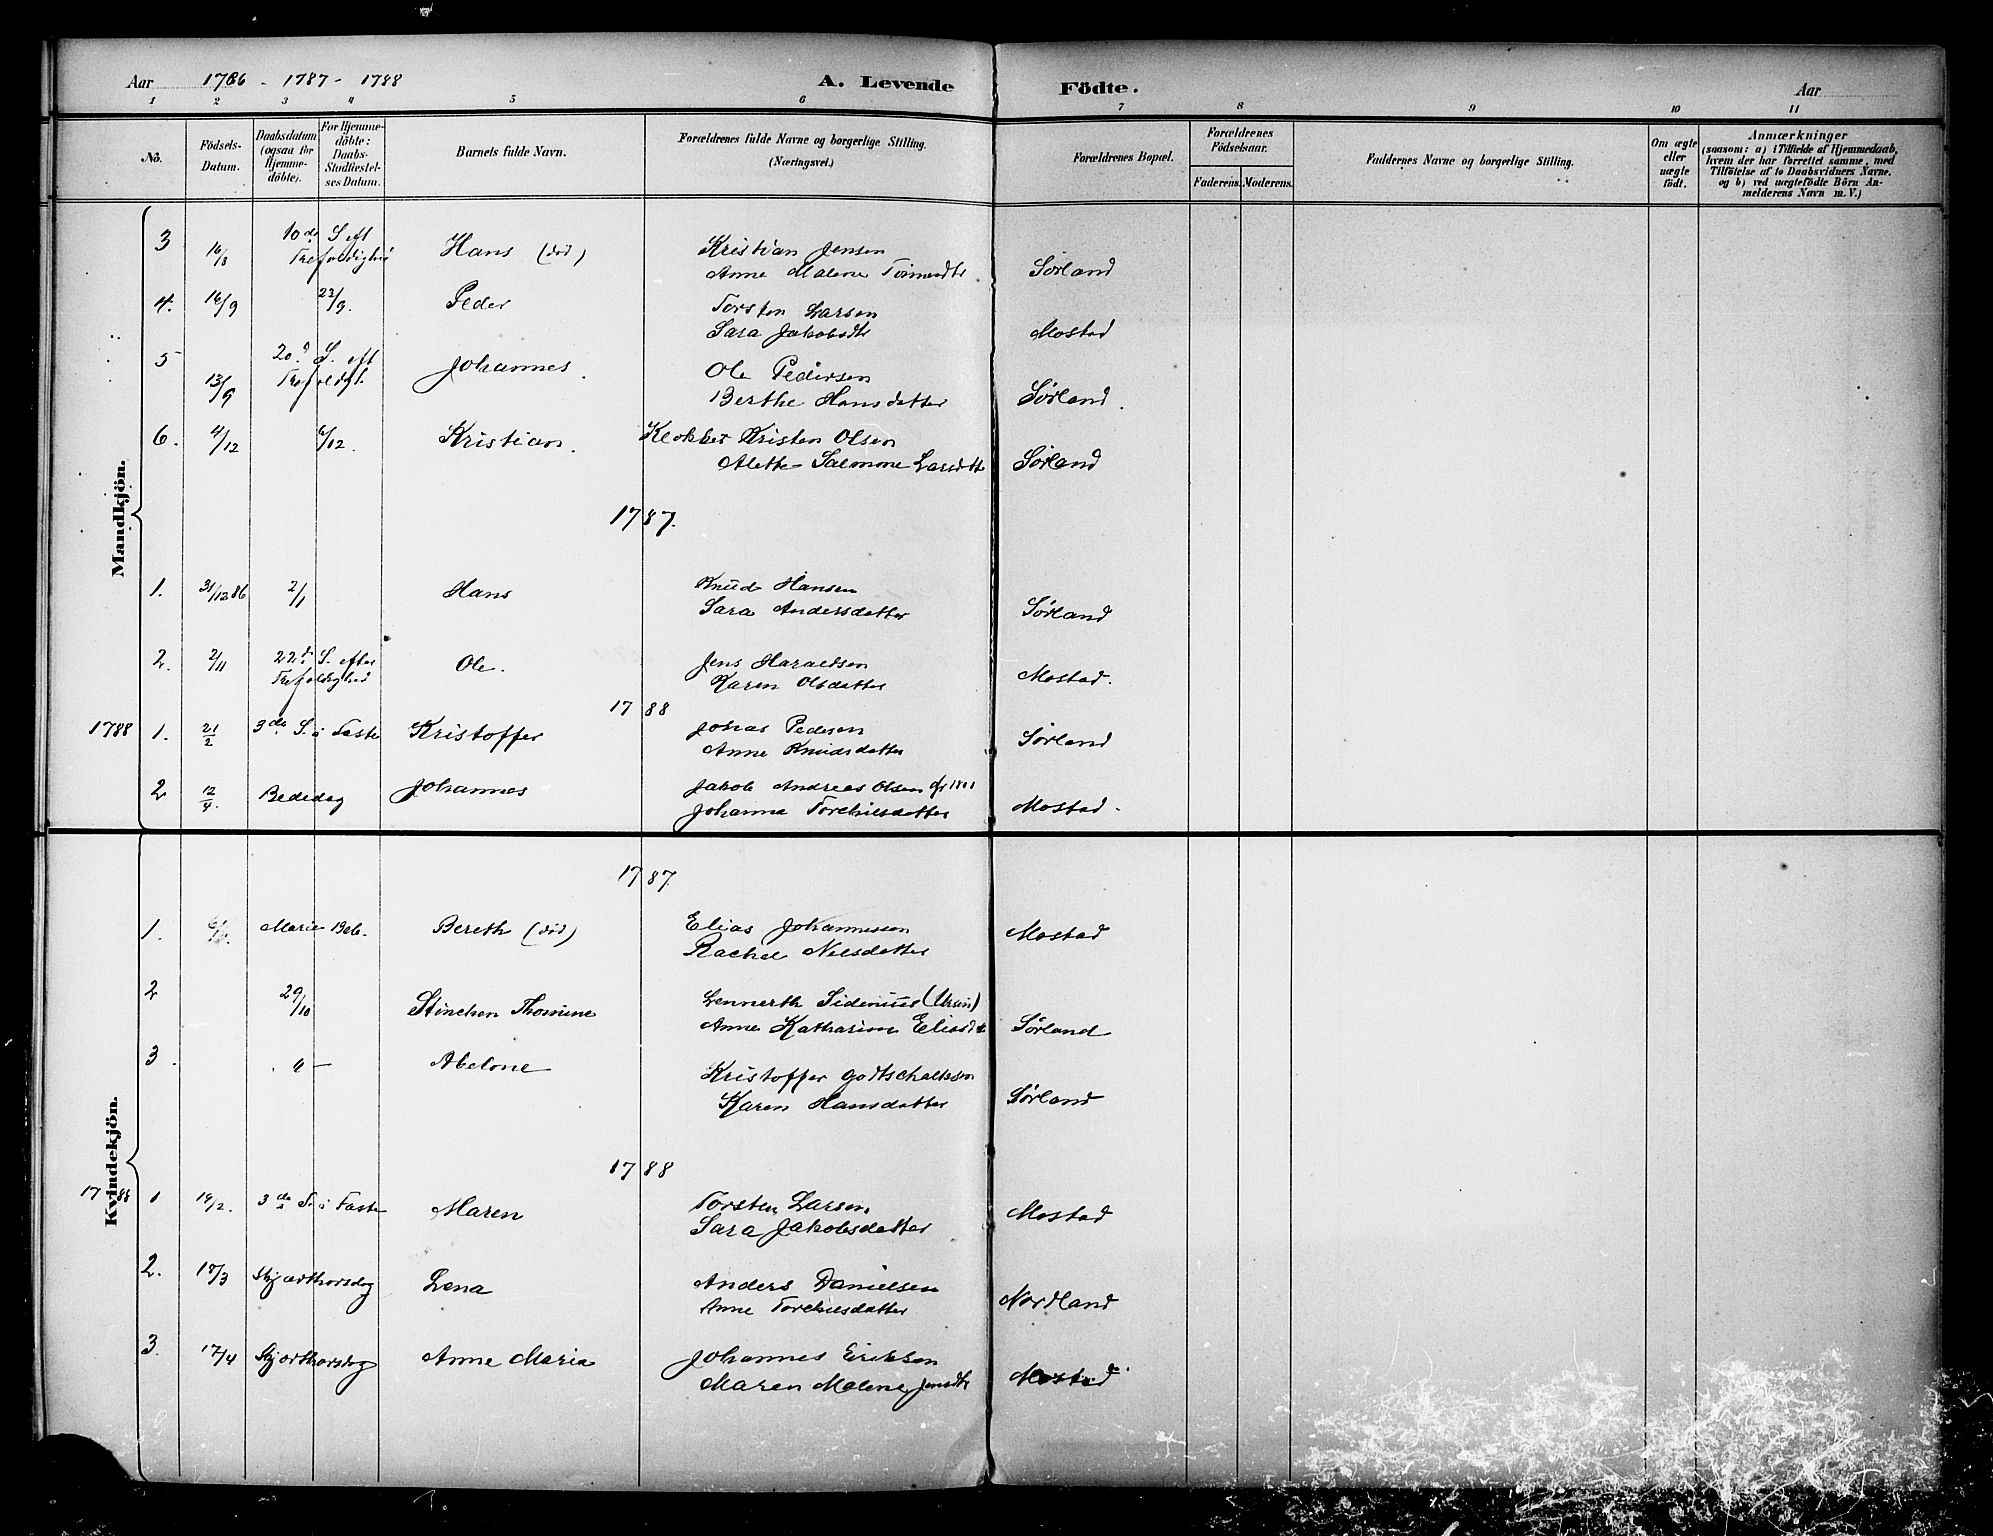 Aar 1786 - 1787 - 1788 A. Levende Födte. Aar
1 2 3 4 5 6 7 8 9 10 11
No. Födsels-Datum. Daabsdatum (ogsaa for Hjemme-döbte). For Hjemme-döbte: Daabs-Stadfæstel-ses Datum. Barnets fulde Navn. Forældrenes fulde Navne og borgerlige Stilling. (Næringsvei.) Forældrenes Bopæl. Forældrenes Födselsaar. Faderens. Moderens. Faddernes Navne og borgerlige Stilling. Om ægte eller uægte födt. Anmærkninger (saasom: a) i Tilfælde af Hjemmedaab, hvem der har forrettet samme, med Tilföielse af to Daabsvidners Navne, og b) ved uægtefödte Börn An-melderens Navn m. V.)
Mandkjön.
3 16/8 10de S. eft Hans (död) Kristian Jensen
Trefoldighed Anne Malene Tormodsdtr Sørland
4. 16/9 23/9. Peder Torsten Larsen
Sara Jakobsdtr Mostad
5 13/9 20de S. eft Johannes. Ole Pedersen
Trefoldgh. Berthe Hansdatter Sørland.
6. 4/12 6/12. Kristian. Klokker Kristen Olsen
Alette Salomone Larsdtr Sørland
1787.
1. 31/12 86 2/1 Hans Knud Hansen
Sara Andersdatter Sørland
2. 2/11 22de S. efter Ole. Jens Haraldsen
Trefoldighed Karen Olsdatter Mostad.
1788
1788 1. 21/2 3de S. i Faste Kristoffer Johas Pedersen
Anne Knudsdatter Sørland
2 12/4. Bededag Johannes Jakob Andreas Olsen
Johanna Torchilsdatter Mostad.
Kvindekjön.
1787.
1. Marie Beb. Bereth (död) Elias Johannessen
Rachel Nilsdatter Mostad
2 29/10 Stinchen Thomine Lennerth Sidenius (Ursin)
Anne Katharine Eliasdtr Sørland
3. " — Abelone Kristoffer Godtschalksen
Karen Hansdatter Sørland
1788
1788 1 19/2. 3de S. i Faste Maren Torsten Larsen
Sara Jakobsdatter Mostad
2. 18/3 Skjærthorsdag Lena Anders Danielsen
Anne Torchilsdatter Nordland
3. 17/4 Skjærthorsdag Anne Maria Johannes Eriksen
Maren Malene Jensdtr Mostad